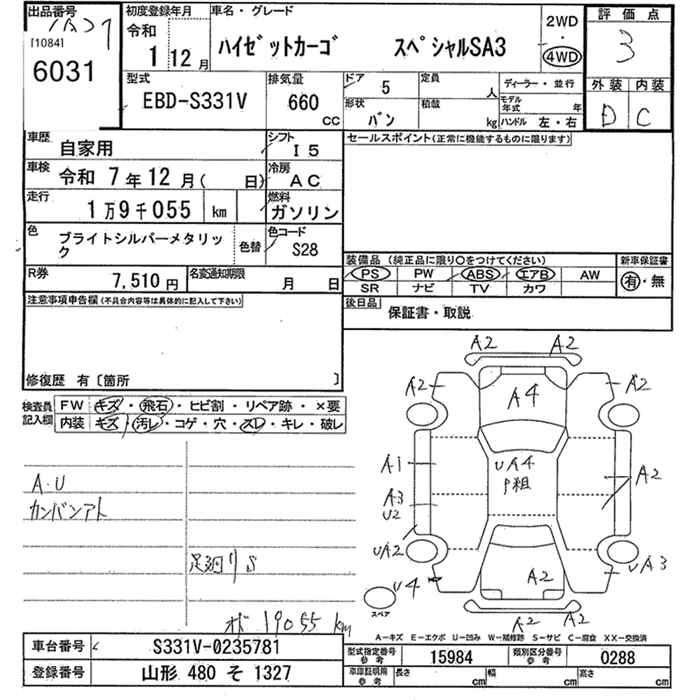 出品番号
[1084]
6031
初度登録年月
令和
1 12月
車名・グレード
ハイゼットカーゴ スペシャルSA3
2WD
・
4WD
評価点
3
外装 内装
D C
型式
EBD-S331V
排気量
660
CC
ドア
5
形状
バン
定員
人
積載
kg
ディーラー・並行
モデル年式 年
ハンドル 左・右
車歴
自家用
シフト
I5
車検
令和 7年12月( 日)
冷房
AC
走行
1万9千055 km
燃料
ガソリン
色
ブライトシルバーメタリック
色替
色コード
S28
R券
7,510円
名変通知期限
月 日
セールスポイント(正常に機能するものに限ります)
装備品(純正品に限り○をつけてください)
新車保証書
PS PW ABS エアB AW
SR ナビ TV カワ
有・無
後日品
保証書・取説
注意事項申告欄(不具合内容等は具体的に記入して下さい)
修復歴 有〔箇所 〕
検査員記入欄
FW キズ・飛石・ヒビ割・リペア跡・×要
内装 キズ・汚レ・コゲ・穴・スレ・キレ・破レ
A2 A2
A2 A2
A4
A1
UA4
P組
A2
A3
U2
UA2
UA3
U4
A2
A2 A2
スペア
A.U
カンバンアト
足廻りS
オド 19055 km
A−キズ E−エクボ U−凹み W−補修跡 S−サビ C−腐食 XX−交換済
車台番号
S331V-0235781
登録番号
山形 480 そ 1327
型式指定番号
参考
15984
類別区分番号
参考
0288
車庫証明用
参考
長さ cm
幅 cm
高さ cm